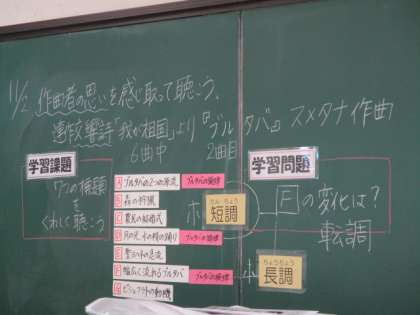 11/2 作曲者の思いを感じ取って聴こう。
連作交響詩「我が祖国」より『ブルタバ』スメタナ作曲
6曲中 2曲目
学習課題
7つの標題を
くわしく聴こう
A ブルタバの2つの源流 ブルタバの旋律
B 森の狩猟
C 農民の結婚式
D 月の光、水の精の踊り ブルタバの旋律
E 聖ヨハネの急流
F 幅広く流れるブルタバ ブルタバの旋律
G ビシェフラトの動機
学習問題
ホ 短調
たんちょう
Fの変化は?
転調
ホ 長調
ちょうちょう